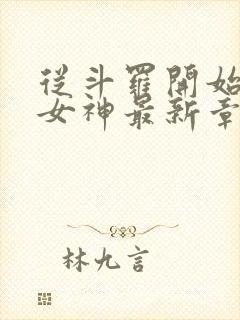 從斗羅開始
女神最新章
林九言